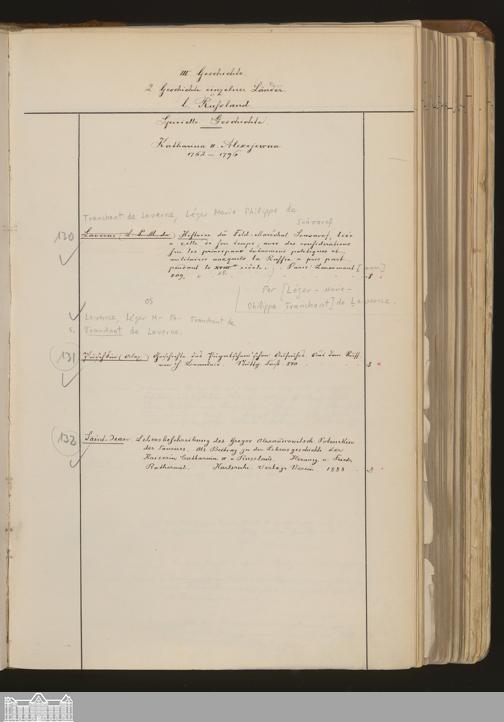 III Geschichte
2 Geschichte einzelner Länder
l. Rußland
Spezielle Geschichte.
Katharina II Alexejewna
1762 – 1796
Tranchant de Laverne, Léger Marie Philippe de
Souvarof
130 Laverne, L. M. de, Histoire du Feld-Maréchal Souvarof, liée
à celle de son temps, avec des considérations
sur les principaux événemens politiques et
militaires auxquels la Russie a pris part
pendant le XVIII siècle. Paris
809.
Par [Léger - Marie -
Philippe Tranchant] de Laverne.
Laverne, Léger M- Ph- Tranchant de
s. Tranchant de Laverne.
131 Puschkin (Alex.) Geschichte des Pugatschew'schen Aufruhrs. Aus dem Russ.
von H. Brandeis. Stuttg. 840
132 Saint-Jean Lebensbeschreibung des Gregor Alexandrowitsch Potemkin
des Tauriers. Als Beitrag zu der Lebensgeschichte der
Kaiserin Catharina II v. Russland. Herausg. v. Friedr.
Rothermel. Karlsruhe. Verlags Verein. 1888